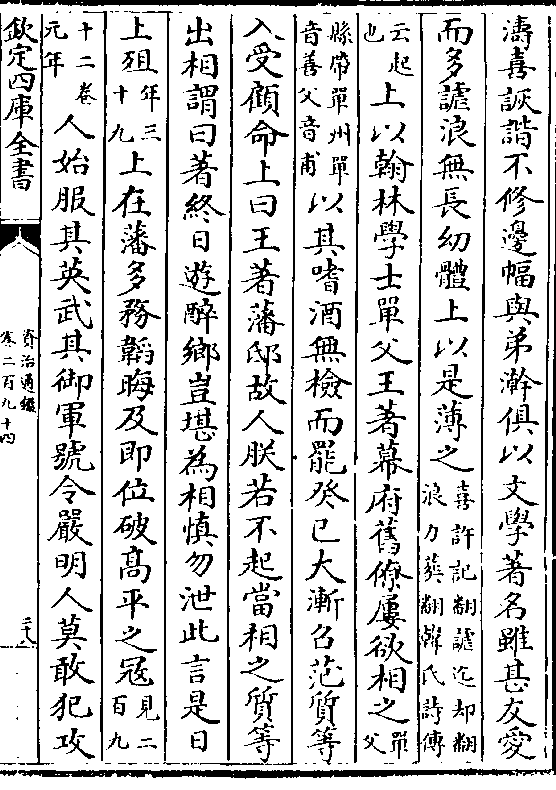 濤喜詼諧不修邊幅與弟澣俱以文學著名雖甚友愛
而多謔浪無長幼體上以是薄之喜許記翻謔迄却翻浪力葬翻韓氏詩傳
云起也上以翰林學士單父王著幕府舊僚屢欲相之單父
縣帶單州單音善父音甫以其嗜酒無檢而罷癸巳大漸召范質等
入受顧命上曰王著藩邸故人朕若不起當相之質等
出相謂曰著終日遊醉鄉豈堪為相慎勿泄此言是日
上殂年三十九上在藩多務韜晦及即位破高平之寇見二百九
十二卷元年人始服其英武其御軍號令嚴明人莫敢犯攻
欽定四庫全書
資治通鑑
卷二百九十四
三十八